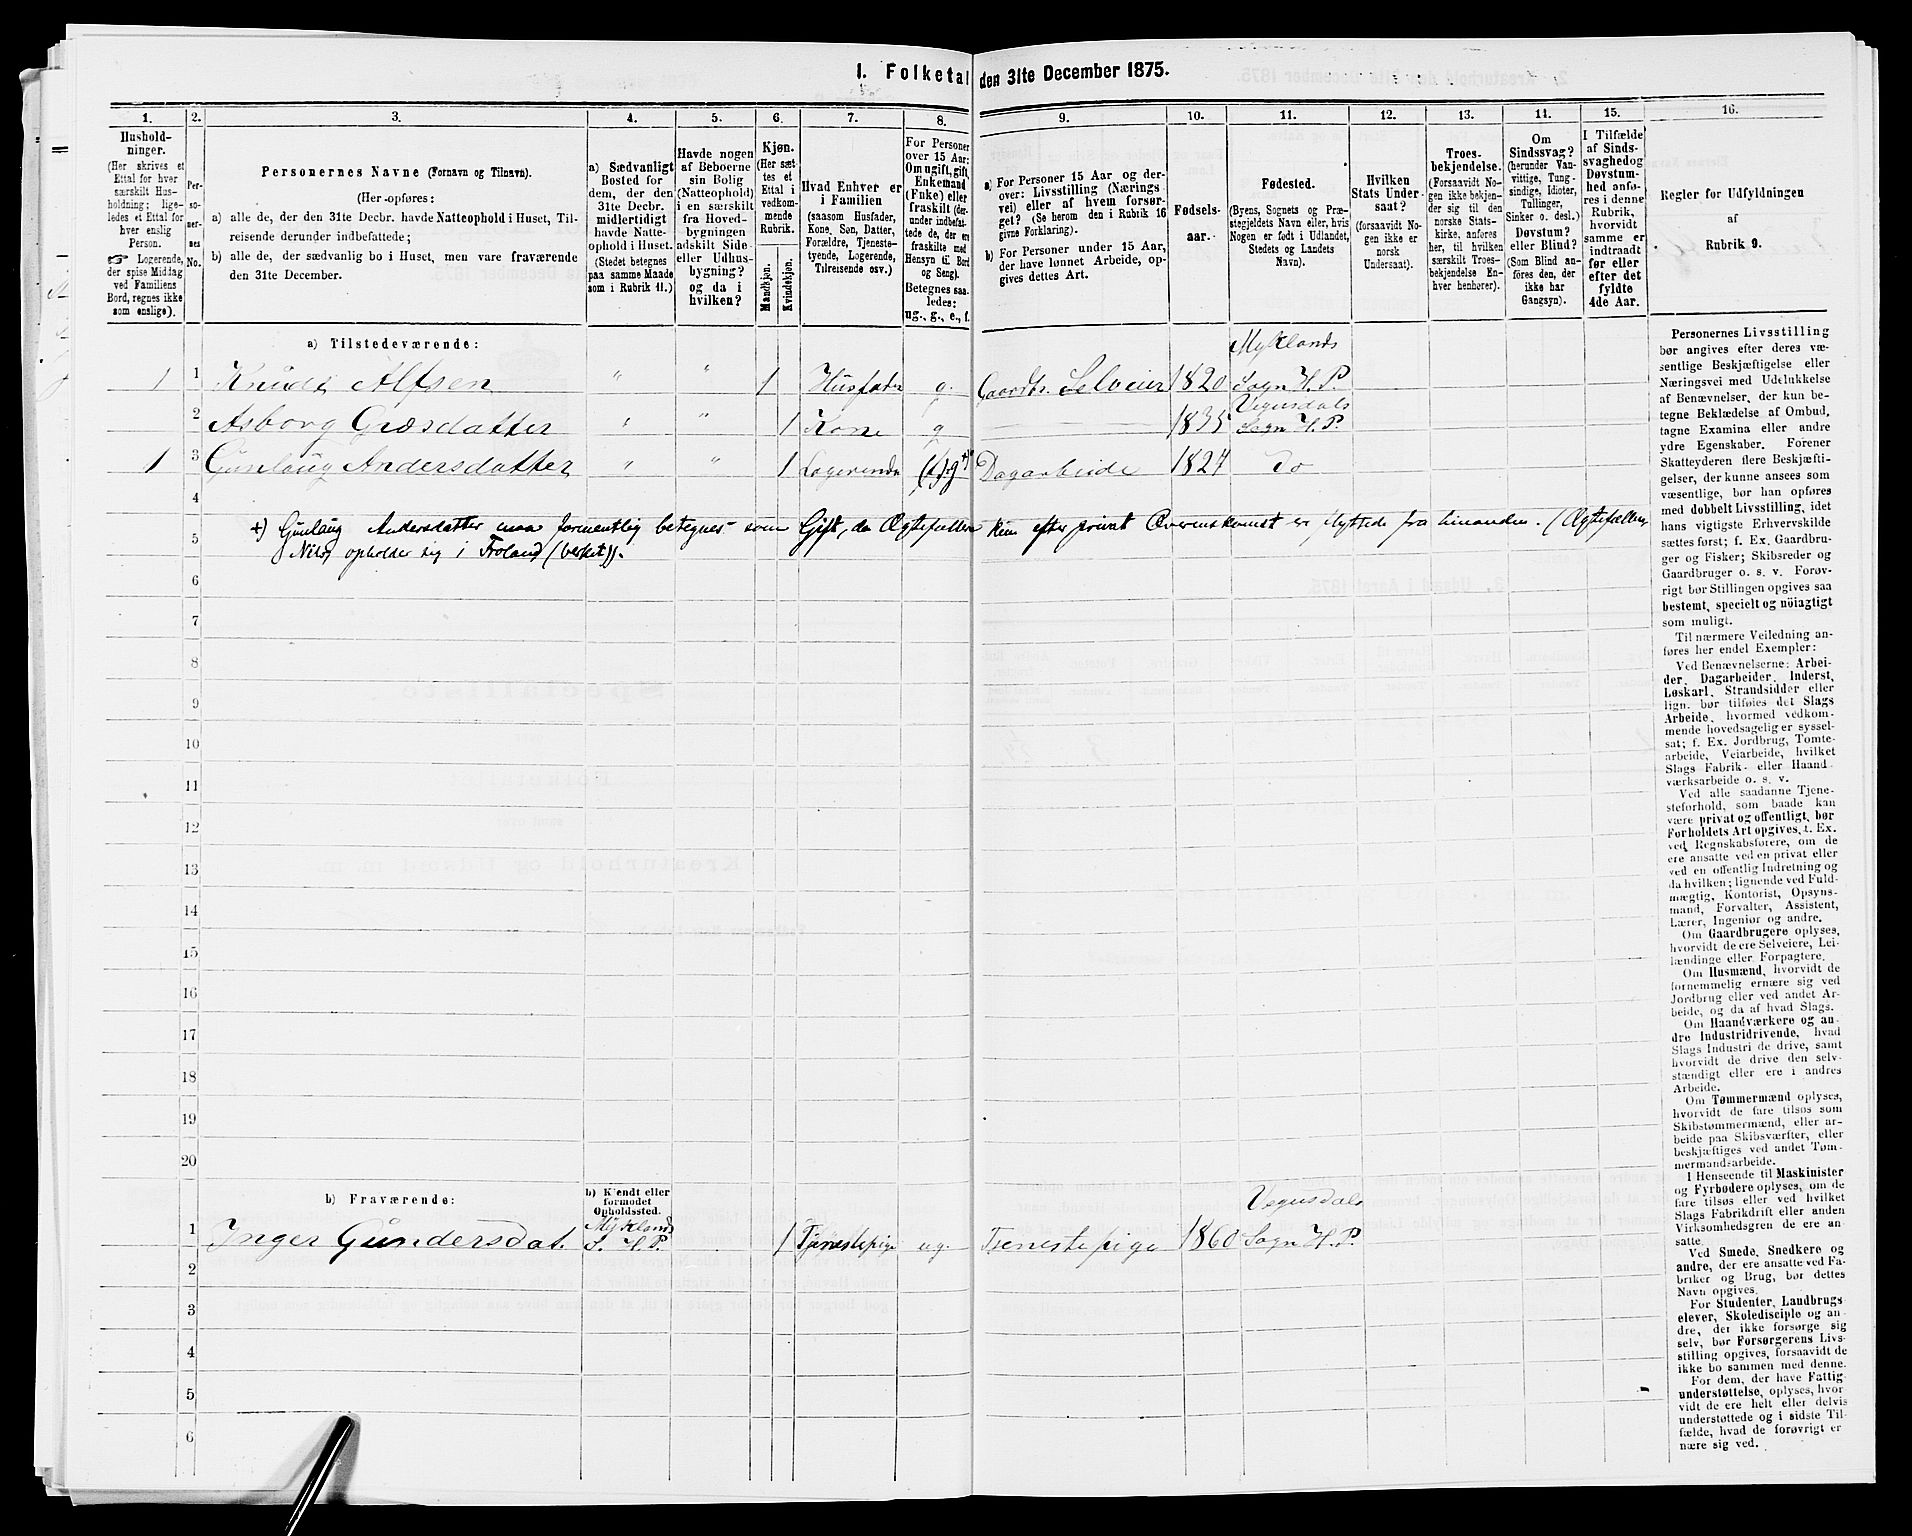 I. Folketal den 31te December 1875.
1. 2. 3. 4. 5. 6. 7. 8. 9. 10. 11. 12. 13. 14. 15. 16.
Hushold-
ninger.
(Her skrives et
Ettal for hver
særskilt Hus-
holdning; lige-
ledes et Ettal for
hver enslig
Person.
☞ Logerende,
der spise Middag
ved Familiens
Bord, regnes ikke
som enslige).
Per-
so-
ner-
nes
No.
Personernes Navne (Fornavn og Tilnavn).
(Her opføres:
a) alle de, der den 31te Decbr. havde Natteophold i Huset, Til-
reisende derunder indbefattede;
b) alle de, der sædvanlig bo i Huset, men vare fraværende
den 31te December.
a) Sædvanligt
Bosted for
dem, der den
31te Decbr.
midlertidigt
havde Natte-
ophold i Huset.
(Stedet betegnes
paa samme Maade
som i Rubrik 11.)
Havde nogen
af Beboerne
sin Bolig
(Natteophold)
i en særskilt
fra Hoved-
bygningen
adskilt Side-
eller Udhus-
bygning?
og da i
hvilken?
Kjøn.
(Her sæt-
tes et
Ettal i
vedkom-
mende
Rubrik.
Mandkjøn.
Kvindekjøn.
Hvad Enhver er
i Familien
(saasom Husfader,
Kone, Søn, Datter,
Forældre, Tjeneste-
tyende, Logerende,
Tilreisende osv.)
For Personer
over 15 Aar:
Om ugift, gift,
Enkemand
(Enke) eller
fraskilt (der-
under indbefat-
tede de, der ere
fraskilte med
Hensyn til Bord
og Seng).
Betegnes saa-
ledes:
ug., g., e., f.
a) For Personer 15 Aar og der-
over: Livsstilling (Nærings-
vei) eller af hvem forsør-
get? (Se herom den i Rubrik 16
givne Forklaring).
b) For Personer under 15 Aar,
der have lønnet Arbeide, op-
gives dettes Art.
Fødsels-
aar.
Fødested.
(Byens, Sognets og Præ-
stegjeldets Navn eller, hvis
Nogen er født i Udlandet,
Stedets og Landets
Navn).
Hvilken
Stats Under-
saat?
(forsaavidt No-
gen ikke er
norsk
Undersaat).
Troes-
bekjendelse.
(Forsaavidt No-
gen ikke bekjen-
der sig til den
norske Stats-
kirke, anføres
her, til hvilken
særskilt Troes-
bekjendelse En-
hver henhører).
Om
Sindssvag?
(herunder Van-
vittige, Tung-
sindige, Idioter,
Sinker o. desl.)
Døvstum?
eller Blind?
(Som Blind an-
føres den, der
ikke har
Gangsyn).
I Tilfælde
af Sinds-
svaghed og
Døvstum-
hed anfø-
res i denne
Rubrik,
hvorvidt
samme er
indtraadt
før eller
efter det
fyldte
4de Aar.
Regler for Udfyldningen
af
Rubrik 9.
a) Tilstedeværende:
1 1 Knud Alfsen " " 1 Husfader g. Gaardbr. Selveier 1820 Myklands Sogn H. P.
2 Asborg Græsdatter " " 1 Kone g — 1835 Vegusdals Sogn H. P.
1 3 Gunlaug Andersdatter " " 1 Logerende (f) g +) Dagarbeide 1827 Do
4
5 +) Gunlaug Andersdatter maa formentlig betegnes som Gift, da Ægtefællerne kun efter privat Overenskomst er flyttede fra hinanden. (Ægtefællen
Nils, opholder sig i Froland (verket)).
6
7
8
9
10
11
12
13
14
15
16
17
18
19
20
b) Fraværende:
b) Kjendt eller
formodet
Opholdssted.
1 Inger Gundersdat. Mykland S. H. P. 1 Tjenestepige ug. Tjenestepige 1860 Vegusdals Sogn H. P.
2
3
4
5
6
Personernes Livsstilling
bør angives efter deres væ-
sentlige Beskjæftigelse eller
Næringsvei med Udelukkelse
af Benævnelser, der kun be-
tegne Beklædelse af Ombud,
tagne Examina eller andre
ydre Egenskaber. Forener
Skatteyderen flere Beskjæfti-
gelser, der kunne ansees som
væsentlige, bør han opføres
med dobbelt Livsstilling, idet
hans vigtigste Erhvervskilde
sættes først; f. Ex. Gaardbru-
ger og Fisker; Skibsreder og
Gaardbruger o. s. v. Forøv-
rigt bør Stillingen opgives saa
bestemt, specielt og nöiagtigt
som muligt.
Til nærmere Veiledning an-
føres her endel Exempler:
Ved Benævnelserne: Arbei-
der, Dagarbeider, Inderst,
Løskarl, Strandsidder eller
lign. bør tilføies det Slags
Arbeide, hvormed vedkom-
mende hovedsagelig er syssel-
sat; f. Ex. Jordbrug, Tomte-
arbeide, Veiarbeide, hvilket
Slags Fabrik- eller Haand-
værksarbeide o. s. v.
Ved alle saadanne Tjene-
steforhold, som baade kan
være privat og offentligt, bør
Forholdets Art opgives, t. Ex.
ved Regnskabsførere, om de
ere ansatte ved en privat eller
ved en offentlig Indretning og
da hvilken; lignende ved Fuld-
mægtig, Kontorist, Opsyns-
mand, Forvalter, Assistent,
Lærer, Ingeniør og andre.
Om Gaardbrugere oplyses,
hvorvidt de ere Selveiere, Lei-
lændinge eller Forpagtere.
Om Husmænd, hvorvidt de
fornemmelig ernære sig ved
Jordbrug eller ved andet Ar-
beide, og da af hvad Slags.
Om Haandværkere og an-
dre Industridrivende, hvad
Slags Industri de drive, samt
hvorvidt de drive den selv-
stændigt eller ere i andres
Arbeide.
Om Tømmermænd oplyses,
hvorvidt de fare tilsøs som
Skibstømmermænd, eller ar-
beide paa Skibsværfter, eller
beskjæftiges ved andet Tøm-
mermandsarbeide.
I Henseende til Maskinister
og Fyrbødere oplyses, om de
fare tilsøs eller ved hvilket
Slags Fabrikdrift eller anden
Virksomhedsgren de ere an-
satte.
Ved Smede, Snedkere og
andre, der ere ansatte ved Fa-
briker og Brug, bør dettes
Navn opgives.
For Studenter, Landbrugs-
elever, Skoledisciple og an-
dre, der ikke forsørge sig
selv, bør Forsørgerens Livs-
stilling opgives, forsaavidt de
ikke bo sammen med denne.
For dem, der have Fattig-
understøttelse, oplyses, hvor-
vidt de ere helt eller delvis
understøttede og i sidste Til-
fælde, hvad de forøvrigt er-
nære sig ved.